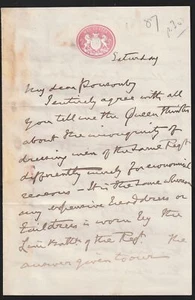 87
Saturday
My dear Ponsonby
I entirely agree with all
you tell me the Queen thinks
about the incongruity of
dressing men of the same Regt
differently merely for economical
reasons. It is the same
any expensive headdress or
is worn by the
Line Battn of the Regt the
answer given to our